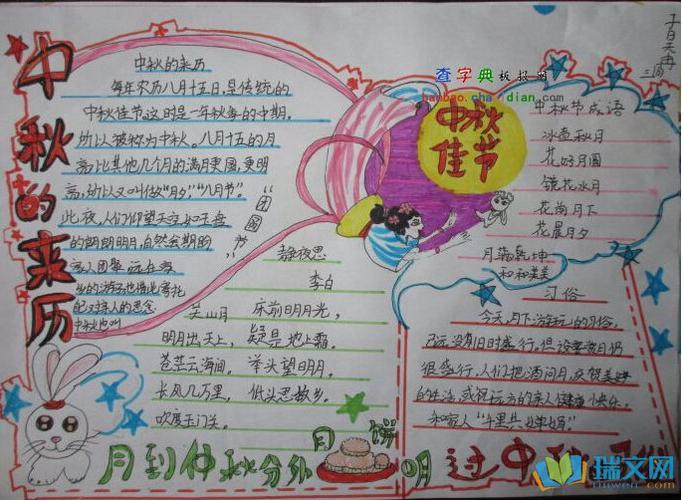 中秋的来历
中秋的来历
每年农历八月十五日,是传统的
中秋佳节,这时是一年秋季的中期,
所以被称为中秋。八月十五的月
亮比其他几个月的满月更圆,更明
亮,所以又叫做“月夕”,“八月节”。
此夜,人们仰望天空如玉盘
的朗朗明月,自然会期盼
家人团聚
远在
的游子也借此寄托
对亲人的思念
中秋也叫
“团圆节”
静夜思
李白
床前明月光,
疑是地上霜。
举头望明月,
低头思故乡。
关山月
明月出天山,
苍茫云海间。
长风几万里,
吹度玉门关。
查字典板报网
banbao.chazidian.com
中秋
佳节
三、
中秋节成语
冰壶秋月
花好月圆
镜花水月
花前月下
花晨月夕
月满乾坤
和和美美
习俗
今天,月下游玩的习俗,
已远没有旧时盛行。但设宴赏月仍
很盛行,人们把酒问月,庆贺美好
的生活,或祝远方的亲人健康快乐,
和家人“千里共婵娟”。
月到仲秋分外明
月饼
过中秋
瑞文网
ruiwen.com